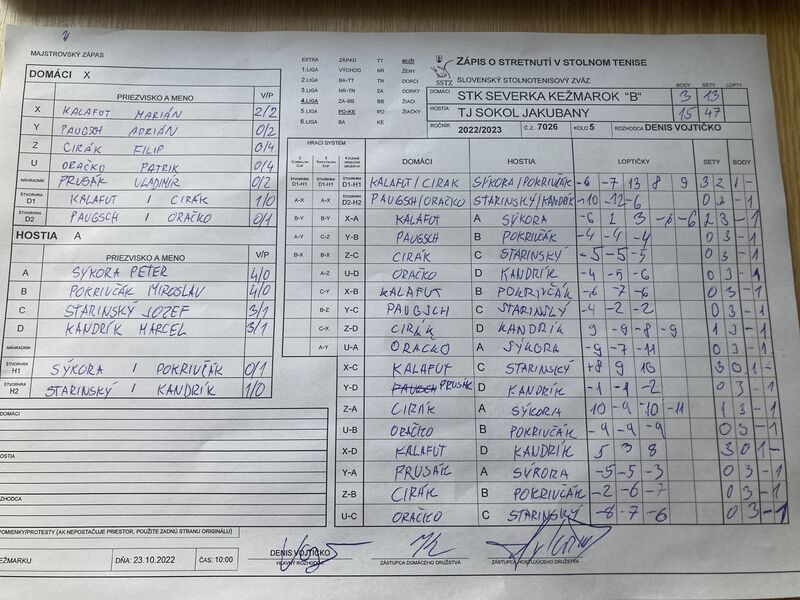 MAJSTROVSKÝ ZÁPAS
DOMÁCI X
PRIEZVISKO A MENO V/P
X KALAFUT MARIÁN 2/2
Y PAUGSCH ADRIÁN 0/2
Z CIRÁK FILIP 0/4
U ORAČKO PATRIK 0/4
NÁHRADNÍK PRUSÁK VLADIMÍR 0/2
ŠTVORHRA D1 KALAFUT / CIRÁK 1/0
ŠTVORHRA D2 PAUGSCH / ORAČKO 0/1
HOSTIA A
PRIEZVISKO A MENO V/P
A SÝKORA PETER 4/0
B POKRIVČÁK MIROSLAV 4/0
C STARINSKÝ JOZEF 3/1
D KANDRÍK MARCEL 3/1
NÁHRADNÍK
ŠTVORHRA H1 SÝKORA / POKRIVČÁK 0/1
ŠTVORHRA H2 STARINSKÝ / KANDRÍK 1/0
DOMÁCI
OSTIA
ROZHODCA
POMIENKY/PROTESTY (AK NEPOSTAČUJE PRIESTOR, POUŽITE ZADNÚ STRANU ORIGINÁLU)
EŽMARKU DŇA: 23.10.2022 ČAS: 10:00
EXTRA ZÁPAD TT muži
1.LIGA VÝCHOD NR ŽENY
2.LIGA BA-TT TN DORCI
3.LIGA NR-TN ZA DORKY
4.LIGA ZA-BB BB ŽIACI
5.LIGA PO-KE PO ŽIAČKY
6.LIGA BA KE
SSTZ
ZÁPIS O STRETNUTÍ V STOLNOM TENISE
SLOVENSKÝ STOLNOTENISOVÝ ZVÄZ
BODY SETY LOPTY
DOMÁCI STK SEVERKA KEŽMAROK "B" 3 13
HOSTIA TJ SOKOL JAKUBANY 15 47
ROČNÍK 2022/2023 Č.Z. 7026 KOLO 5 ROZHODCA DENIS VOJTIČKO
HRACÍ SYSTÉM
DOMÁCI HOSTIA LOPTIČKY SETY BODY
D1-H1 D1-H1 D1-H1 KALAFUT/CIRÁK SÝKORA/POKRIVČÁK -6 -7 13 8 9 3 2 1 -
A-X A-X D2-H2 PAUGSCH/ORAČKO STARINSKÝ/KANDRÍK -10 -12 -6 0 3 - 1
B-Y B-Y X-A KALAFUT A SÝKORA -6 2 3 -6 -6 2 3 - 1
A-Y C-Z Y-B PAUGSCH B POKRIVČÁK -4 -4 -4 0 3 - 1
B-X B-X Z-C CIRÁK C STARINSKÝ -5 -5 -5 0 3 - 1
A-Z U-D ORAČKO D KANDRÍK -4 -5 -6 0 3 - 1
C-Y X-B KALAFUT B POKRIVČÁK -6 -7 -6 0 3 - 1
B-Z Y-C PAUGSCH C STARINSKÝ -4 -2 -2 0 3 - 1
C-X Z-D CIRÁK D KANDRÍK 9 -9 -8 -9 1 3 - 1
A-Y U-A ORAČKO A SÝKORA -9 -7 -11 0 3 - 1
X-C KALAFUT C STARINSKÝ +8 9 16 3 0 1 -
Y-D PAUGSCH PRUSÁK D KANDRÍK -1 -1 -2 0 3 - 1
Z-A CIRÁK A SÝKORA 10 -9 -10 -11 1 3 - 1
U-B ORAČKO B POKRIVČÁK -4 -9 -9 0 3 - 1
X-D KALAFUT D KANDRÍK 5 3 8 3 0 1 -
Y-A PRUSÁK A SÝKORA -5 -5 -3 0 3 - 1
Z-B CIRÁK B POKRIVČÁK -2 -6 -7 0 3 - 1
U-C ORAČKO C STARINSKÝ -8 -7 -6 0 3 - 1
DENIS VOJTIČKO
HLAVNÝ ROZHODCA ZÁSTUPCA DOMÁCEHO DRUŽSTVA ZÁSTUPCA HOSŤUJÚCEHO DRUŽSTVA